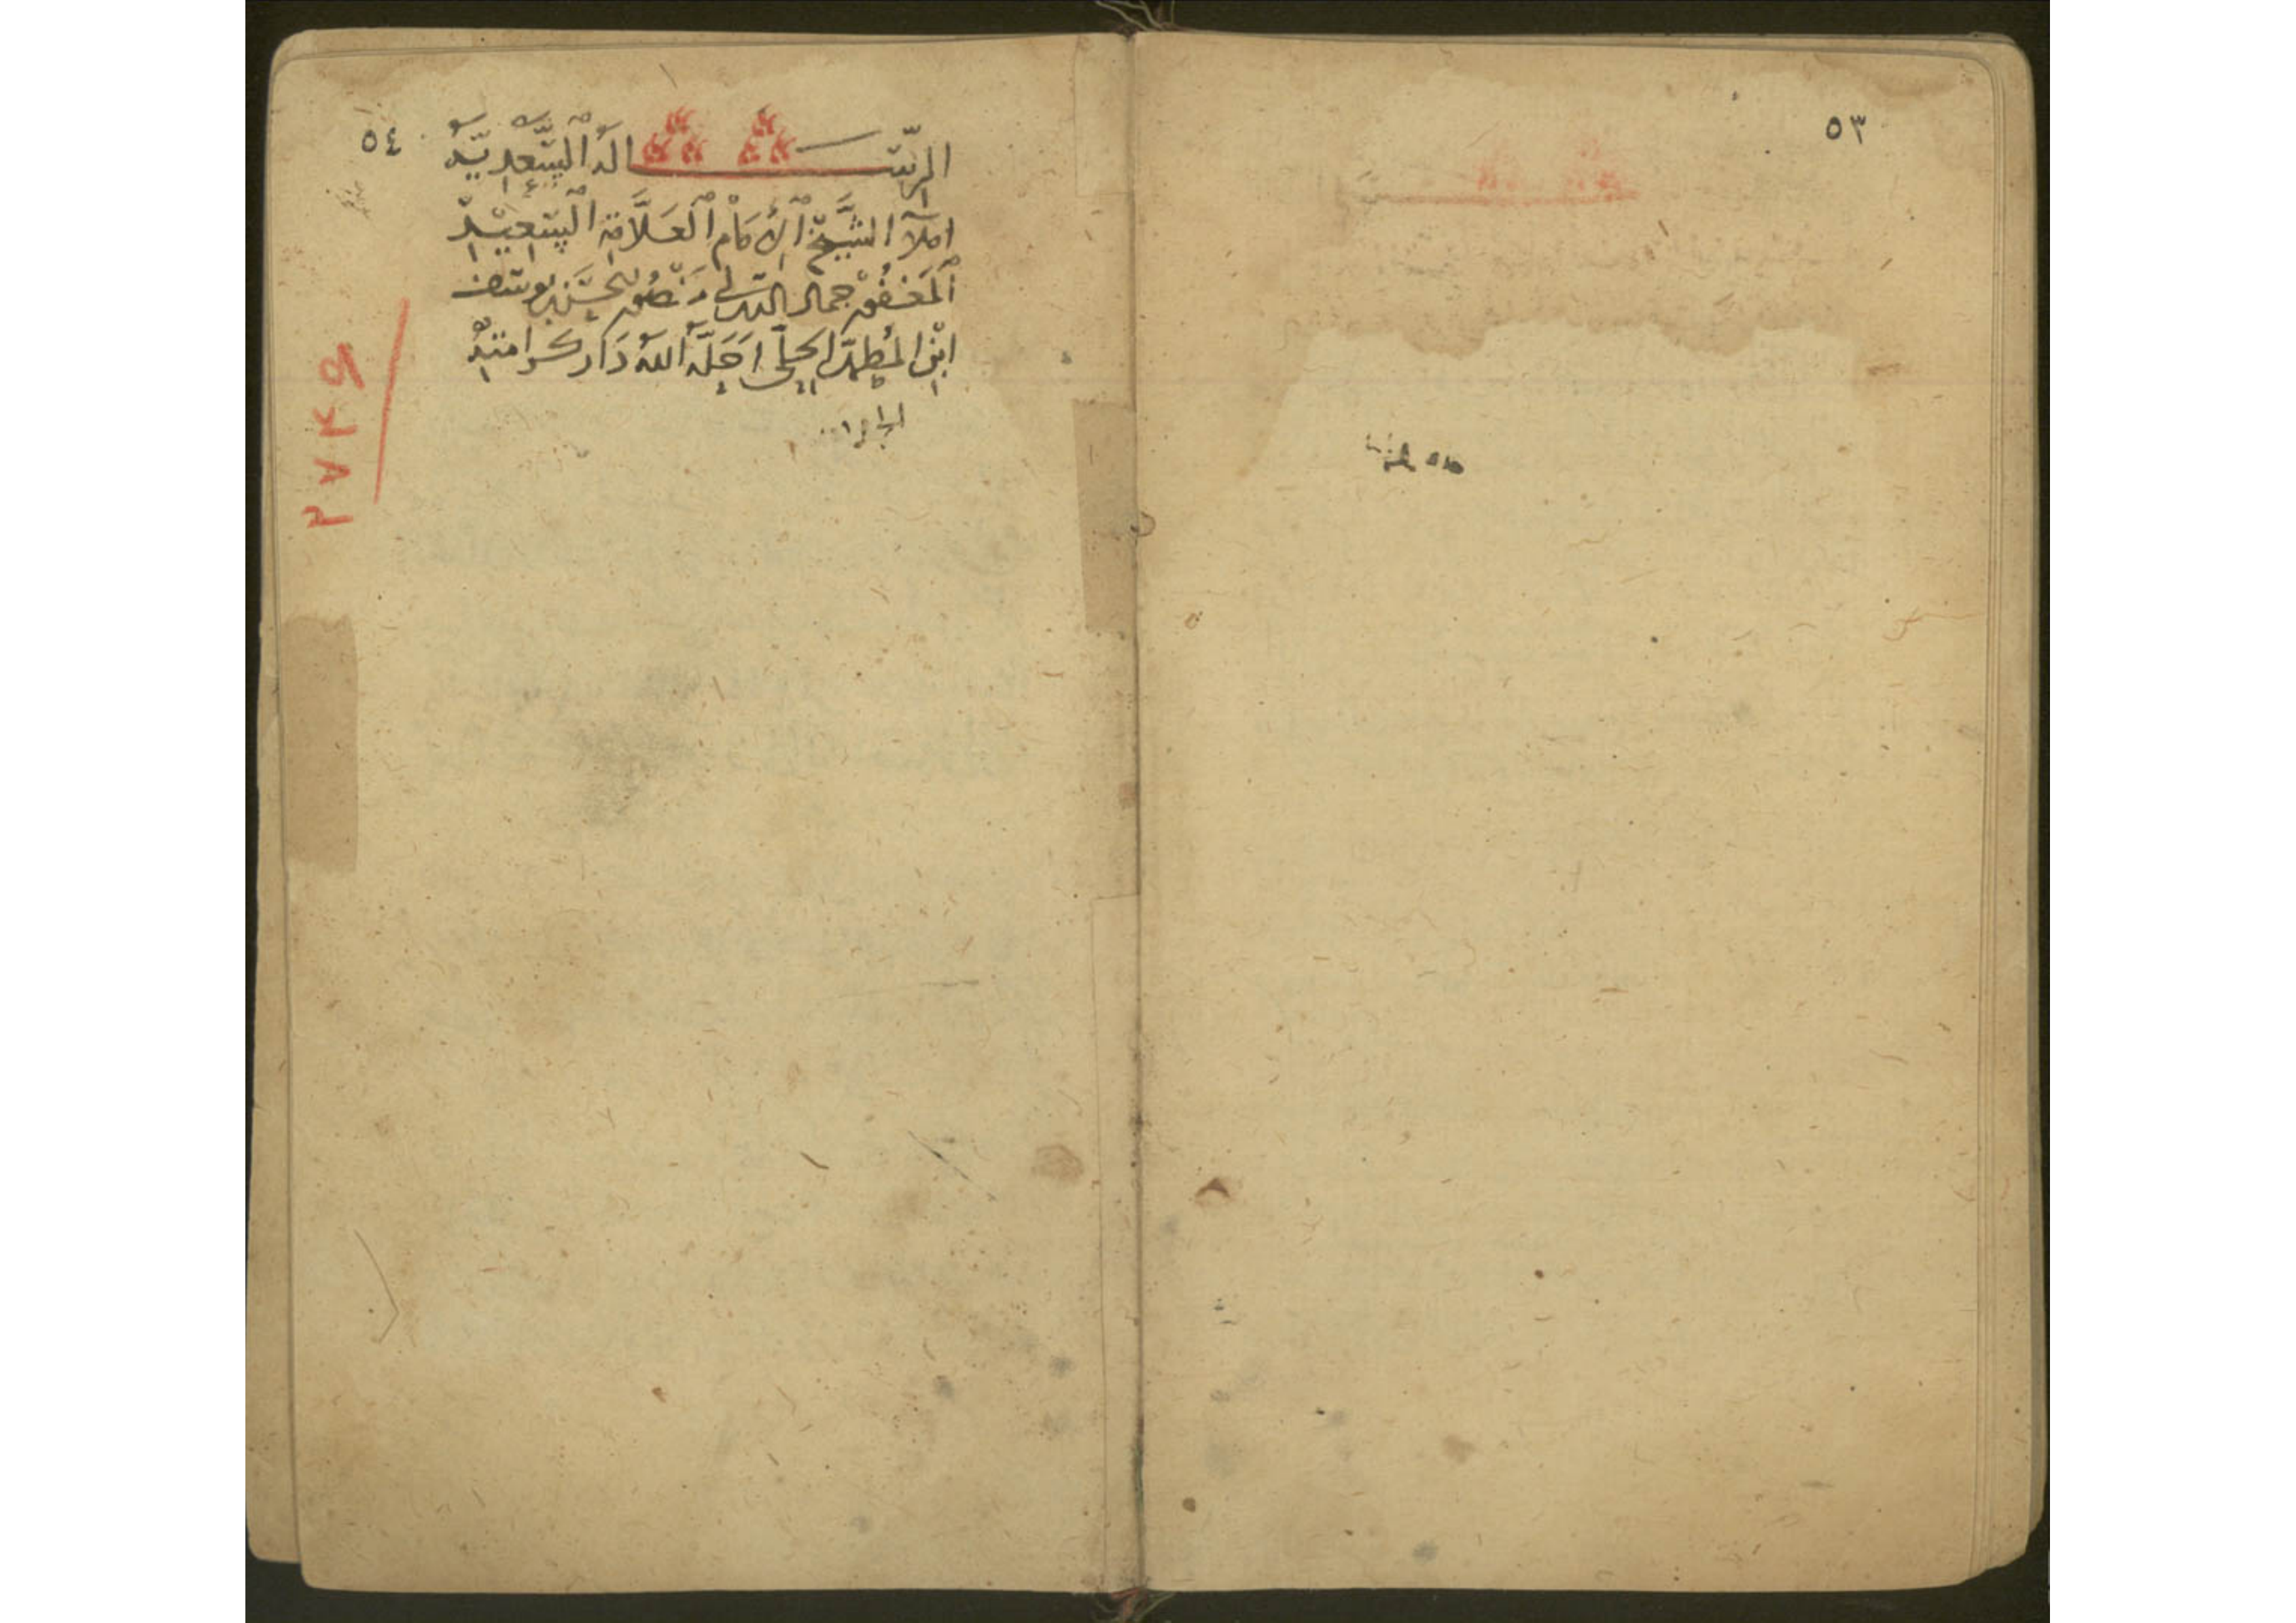 ٥٣
٥٤
الرِّسَالَةُ السَّعْدِيَّةُ
املآ الشَّيْخ الْإِمَام الْعَلَّامَة السَّعِيْد
الْمَغْفُوْر جمال الدين ابى مَنْصُور الحسَن بن يوسف
ابن المُطهّر الحِلّى اَحَلَّهُ اللهُ دَارَ كرامتِهِ